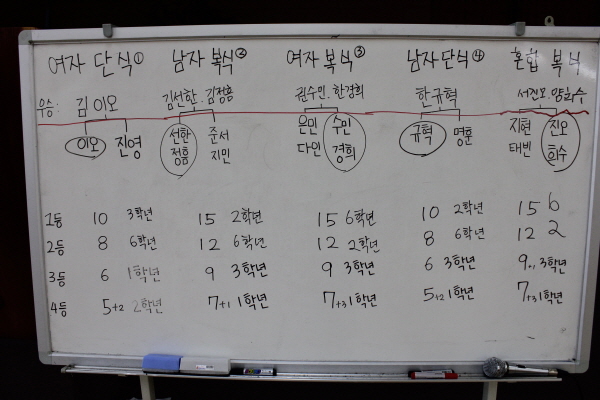 여자 단식① 남자 복식② 여자 복식③ 남자단식④ 혼합 복식
우승: 김이오 김선한·김정흠 권수민·한경희 한규혁 서진오·양희수
이오 진영 선한 준서 은민 수민 규혁 명훈 지현 진오
정흠 지민 다인 경희 태빈 희수
1등 10 3학년 15 2학년 15 6학년 10 2학년 15 6
2등 8 6학년 12 6학년 12 2학년 8 6학년 12 2
3등 6 1학년 9 3학년 9 3학년 6 3학년 9 3학년
4등 5+2 2학년 7+1 1학년 7+3 1학년 5+2 1학년 7+3 1학년